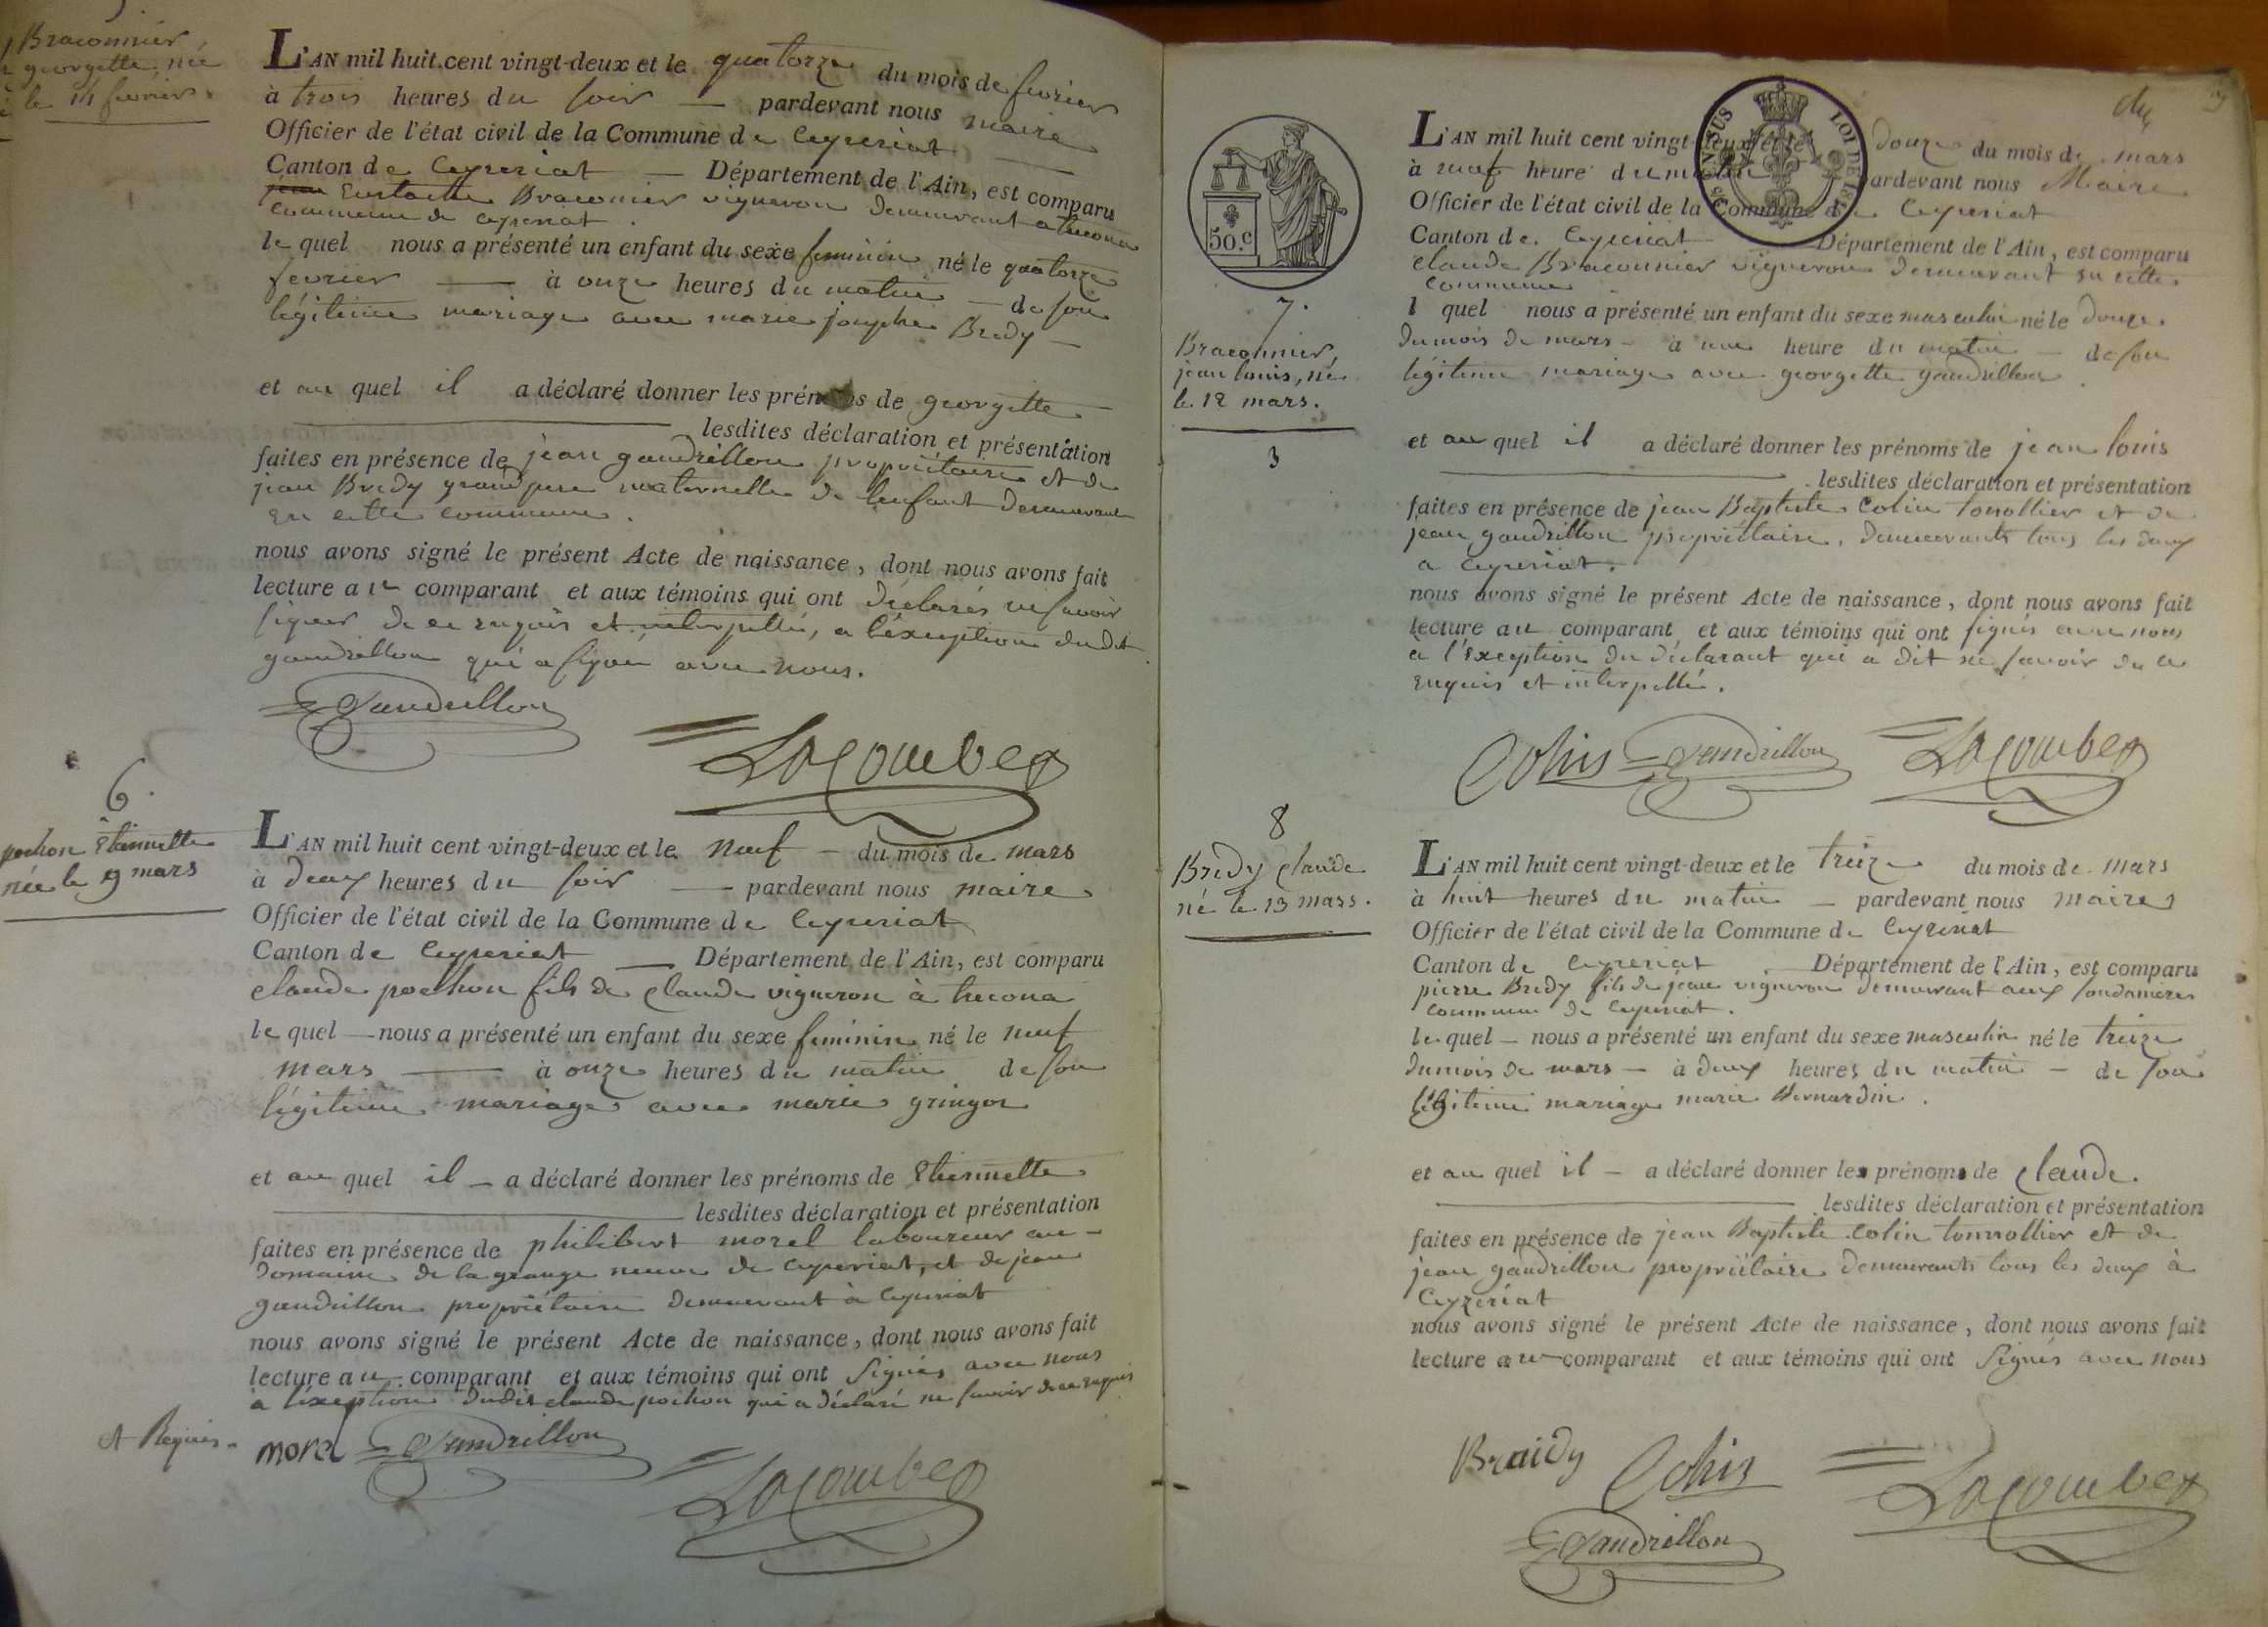 Braconnier
georgette, née
le 14 fevrier.
L'AN mil huit cent vingt-deux et le quatorze du mois de fevrier
à trois heures du soir — pardevant nous maire
Officier de l'état civil de la Commune de Ceyzeriat
Canton de Ceyzeriat — Département de l'Ain, est comparu
Eustache Braconnier vigneron demeurant a treconna
commune de ceyzeriat.
le quel nous a présenté un enfant du sexe feminin né le quatorze
fevrier — à onze heures du matin — de son
légitime mariage avec marie josephe Bredy —
et au quel il a déclaré donner les prénoms de georgette
lesdites déclaration et présentation
faites en présence de jean gaudrillon propriétaire et de
jean Bredy grand pere maternelle de lenfant demeurant
en cette commune.
nous avons signé le présent Acte de naissance, dont nous avons fait
lecture au comparant et aux témoins qui ont déclarés ne savoir
signer de ce enquis et interpellé, a l'exeption dudit
gaudrillon qui a signé avec nous.
Gaudrillon
Lacombe
6.
pochon Etiennette
née le 9 mars
L'AN mil huit cent vingt-deux et le neuf — du mois de mars
à deux heures du soir — pardevant nous maire
Officier de l'état civil de la Commune de Ceyzeriat
Canton de Ceyzeriat — Département de l'Ain, est comparu
claude pochon fils de claude vigneron à trecona
le quel — nous a présenté un enfant du sexe feminin né le neuf
mars — à onze heures du matin de son
légitime mariage avec marie gringoz
et au quel il — a déclaré donner les prénoms de Etiennette
lesdites déclaration et présentation
faites en présence de philibert morel laboureur au —
domaine de la grange neuve de ceyzeriat, et de jean
gaudrillon propriétaire demeurant à Ceyzeriat
nous avons signé le présent Acte de naissance, dont nous avons fait
lecture au comparant et aux témoins qui ont signés avec nous
à l'exeption dudit claude pochon qui a déclaré ne savoir de ce enquis
et Requis.
morel Gaudrillon
Lacombe
CENSUS LOI DE
50.c
7.
Braconnier,
jean louis, né
le 12 mars.
3
L'AN mil huit cent vingt-deux et le douze du mois de mars
à neuf heure du matin pardevant nous Maire
Officier de l'état civil de la Commune de Ceyzeriat
Canton de Ceyzeriat — Département de l'Ain, est comparu
claude Braconnier vigneron demeurant en cette
commune
l quel nous a présenté un enfant du sexe masculin né le douze
du mois de mars — à une heure du matin — de son
légitime mariage avec georgette gaudrillon
et au quel il a déclaré donner les prénoms de jean louis
lesdites déclaration et présentation
faites en présence de jean Baptiste Colin tonnollier et de
jean gaudrillon propriétaire, demeurants tous les deux
a Ceyzeriat.
nous avons signé le présent Acte de naissance, dont nous avons fait
lecture au comparant et aux témoins qui ont signés avec nous
à l'exception du déclarant qui a dit ne savoir de ce
enquis et interpellé.
Colin Gaudrillon Lacombe
8
Bredy claude
né le 13 mars.
L'AN mil huit cent vingt-deux et le treize du mois de mars
à huit heures du matin — pardevant nous maire
Officier de l'état civil de la Commune de Ceyzeriat
Canton de Ceyzeriat — Département de l'Ain, est comparu
pierre Bredy fils de jean vigneron demeurant aux
commune de Ceyzeriat.
le quel — nous a présenté un enfant du sexe masculin né le treize
du mois de mars — à deux heures du matin — de son
légitime mariage marie Bernardin.
et au quel il — a déclaré donner les prénoms de claude.
lesdites déclaration et présentation
faites en présence de jean Baptiste Colin tonnollier et de
jean gaudrillon propriétaire demeurants tous les deux à
Ceyzeriat
nous avons signé le présent Acte de naissance, dont nous avons fait
lecture au comparant et aux témoins qui ont signés avec nous
Braidy Colin
Gaudrillon
Lacombe